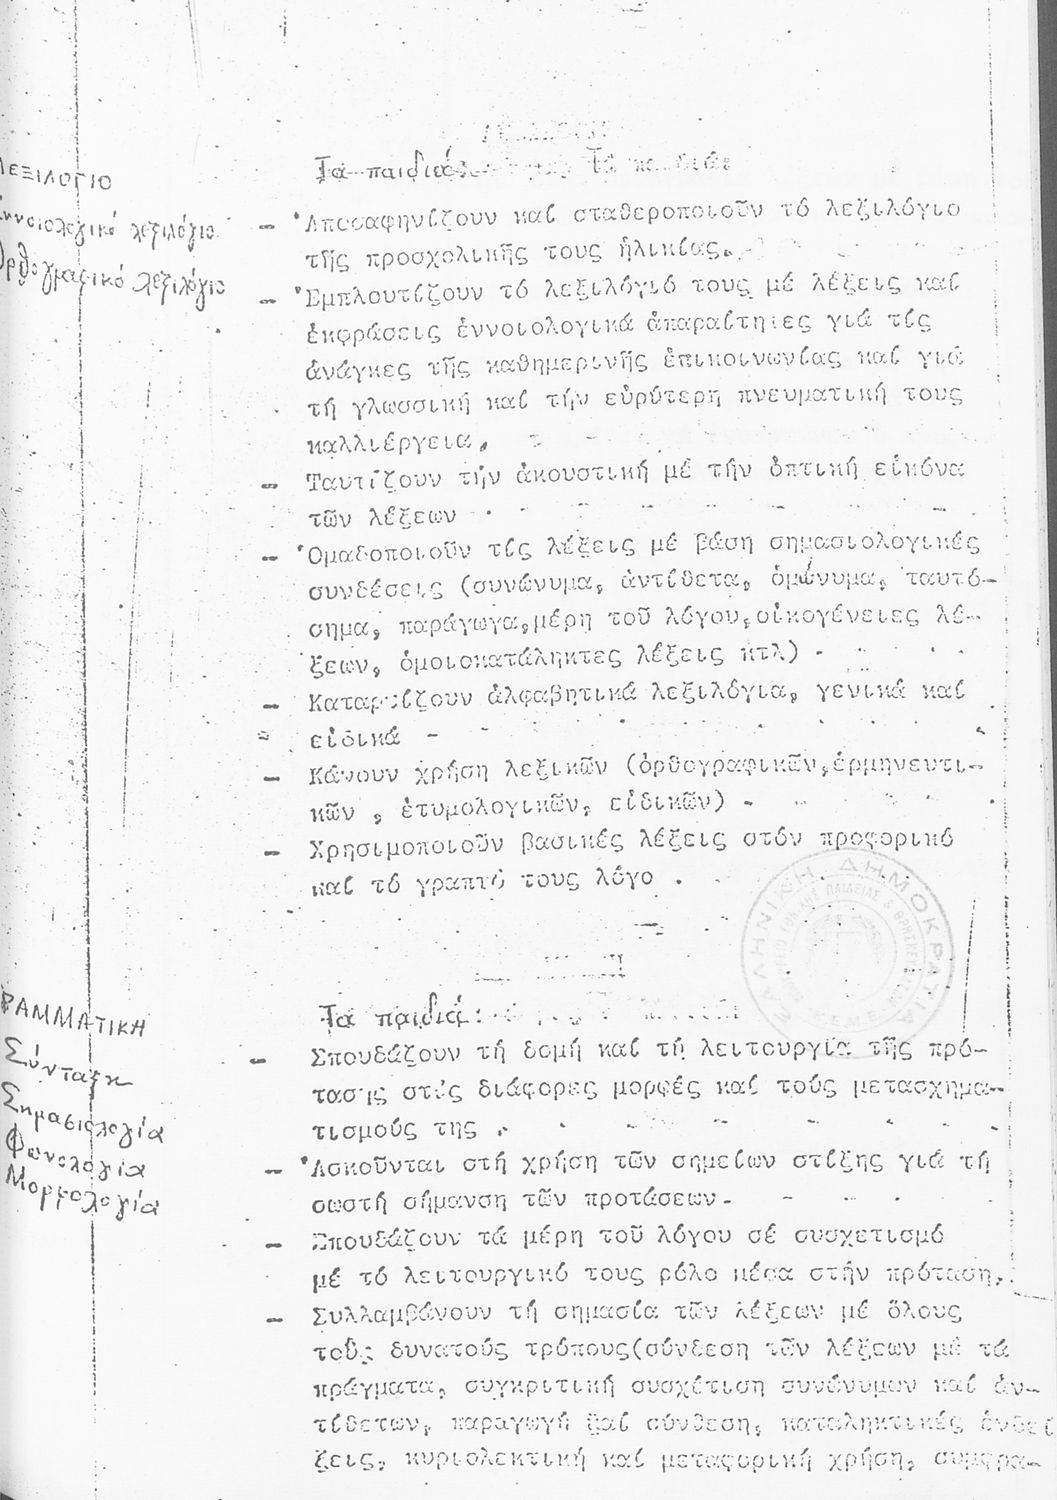 ΛΕΞΙΛΟΓΙΟ
Ἐννοιολογικό λεξιλόγιο.
Ὀρθογραφικό λεξιλόγιο
Τά παιδιά:
- Ἀποσαφηνίζουν καί σταθεροποιοῦν τό λεξιλόγιο
τῆς προσχολικῆς τους ἡλικίας.
- Ἐμπλουτίζουν τό λεξιλόγιό τους μέ λέξεις καί
ἐκφράσεις ἐννοιολογικά ἀπαραίτητες γιά τίς
ἀνάγκες τῆς καθημερινῆς ἐπικοινωνίας καί γιά
τή γλωσσική καί τήν εὐρύτερη πνευματική τους
καλλιέργεια.
- Ταυτίζουν τήν ἀκουστική μέ τήν ὀπτική εἰκόνα
τῶν λέξεων
- Ὁμαδοποιοῦν τίς λέξεις μέ βάση σημασιολογικές
συνδέσεις (συνώνυμα, ἀντίθετα, ὁμώνυμα, ταυτό-
σημα, παράγωγα,μέρη τοῦ λόγου,οἰκογένειες λέ-
ξεων, ὁμοιοκατάληκτες λέξεις κτλ).
- Καταρτίζουν ἀλφαβητικά λεξιλόγια, γενικά καί
εἰδικά
- Κάνουν χρήση λεξικῶν (ὀρθογραφικῶν,ἑρμηνευτι-
κῶν , ἐτυμολογικῶν, εἰδικῶν)
- Χρησιμοποιοῦν βασικές λέξεις στόν προφορικό
καί τό γραπτό τους λόγο .
ΕΛΛΗΝΙΚΗ ΔΗΜΟΚΡΑΤΙΑ
ΓΡΑΜΜΑΤΙΚΗ
Σύνταξη
Σημασιολογία
Φωνολογία
Μορφολογία
Τά παιδιά:
- Σπουδάζουν τή δομή καί τή λειτουργία τῆς πρό-
τασης στίς διάφορες μορφές καί τούς μετασχημα-
τισμούς της .
- Ἀσκοῦνται στή χρήση τῶν σημείων στίξης γιά τή
σωστή σήμανση τῶν προτάσεων.
- Σπουδάζουν τά μέρη τοῦ λόγου σέ συσχετισμό
μέ τό λειτουργικό τους ρόλο μέσα στήν πρόταση.
- Συλλαμβάνουν τή σημασία τῶν λέξεων μέ ὅλους
τούς δυνατούς τρόπους(σύνδεση τῶν λέξεων μέ τά
πράγματα, συγκριτική συσχέτιση συνώνυμων καί ἀν-
τίθετων, παραγωγή καί σύνθεση, καταληκτικές ἐνδεί
ξεις, κυριολεκτική καί μεταφορική χρήση, συμφρα-